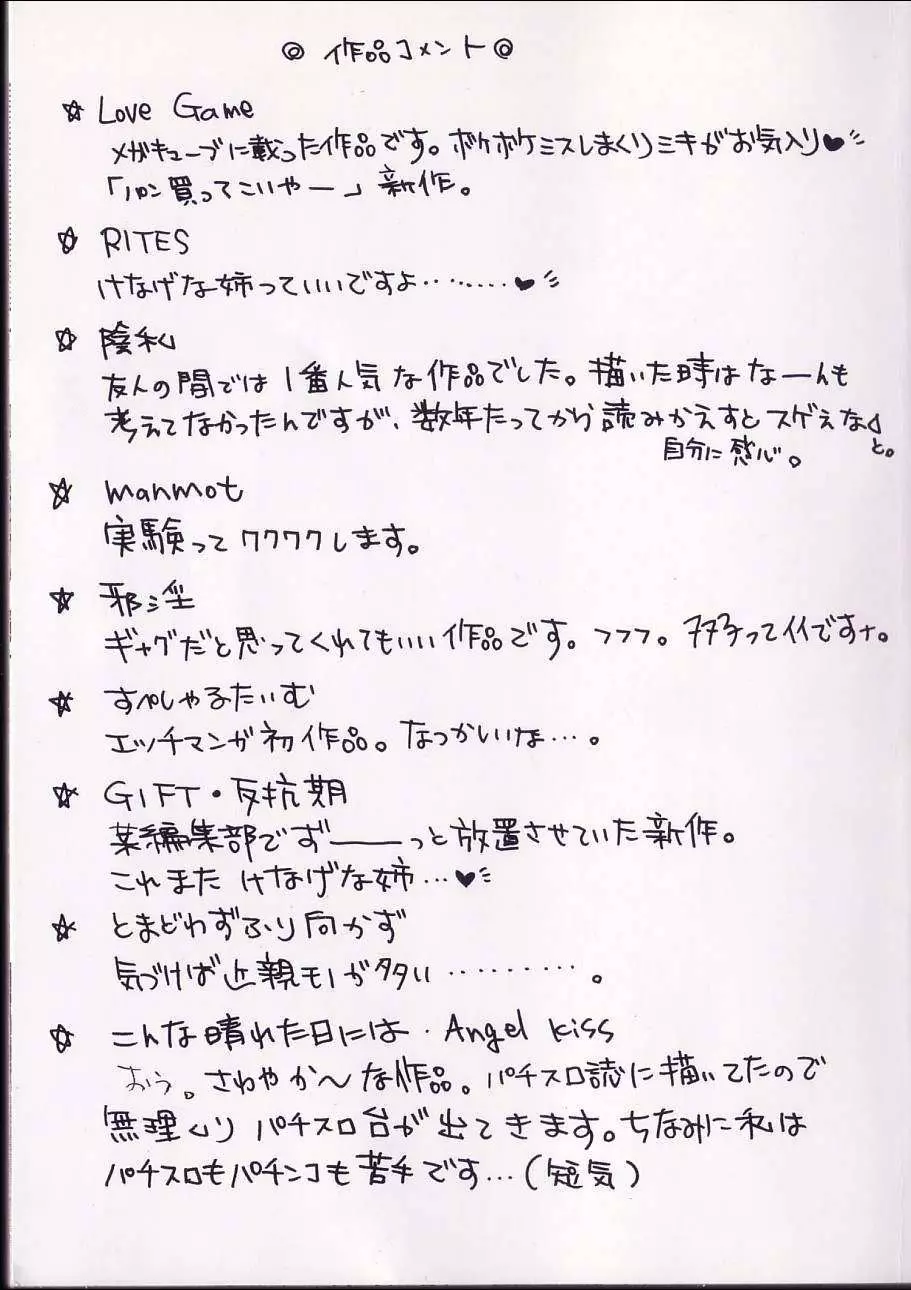 ◎ 作品コメント◎
☆ Love Game
メガキューブに載った作品です。ボケボケミスしまくりミキがお気入り♥
「パン買ってこいやー」新作。
☆ RITES
けなげな姉っていいですよ‥‥‥‥♥
☆ 陰私
友人の間では1番人気な作品でした。描いた時はなーんも
考えてなかったんですが、数年たってから読みかえすとスゲぇな」
と。
自分に感心。
☆ manmot
実験ってワクワクします。
☆ 邪淫
ギャグだと思ってくれてもいい作品です。フフフ。ってイイですナ。
☆ すぺしゃるたいむ
エッチマンガ初作品。なつかいいな…。
☆ GIFT・反抗期
某編集部でずーーっと放置させていた新作。
これまた けなげな姉…♥
☆ とまどわずふり向かず
気づけば近親モノが多い‥‥‥‥‥。
☆ こんな晴れた日には・Angel kiss
おう。さわやか〜な作品。パチスロ誌に描いてたので
無理くりパチスロ台が出てきます。ちなみに私は
パチスロもパチンコも苦手です…(短気)